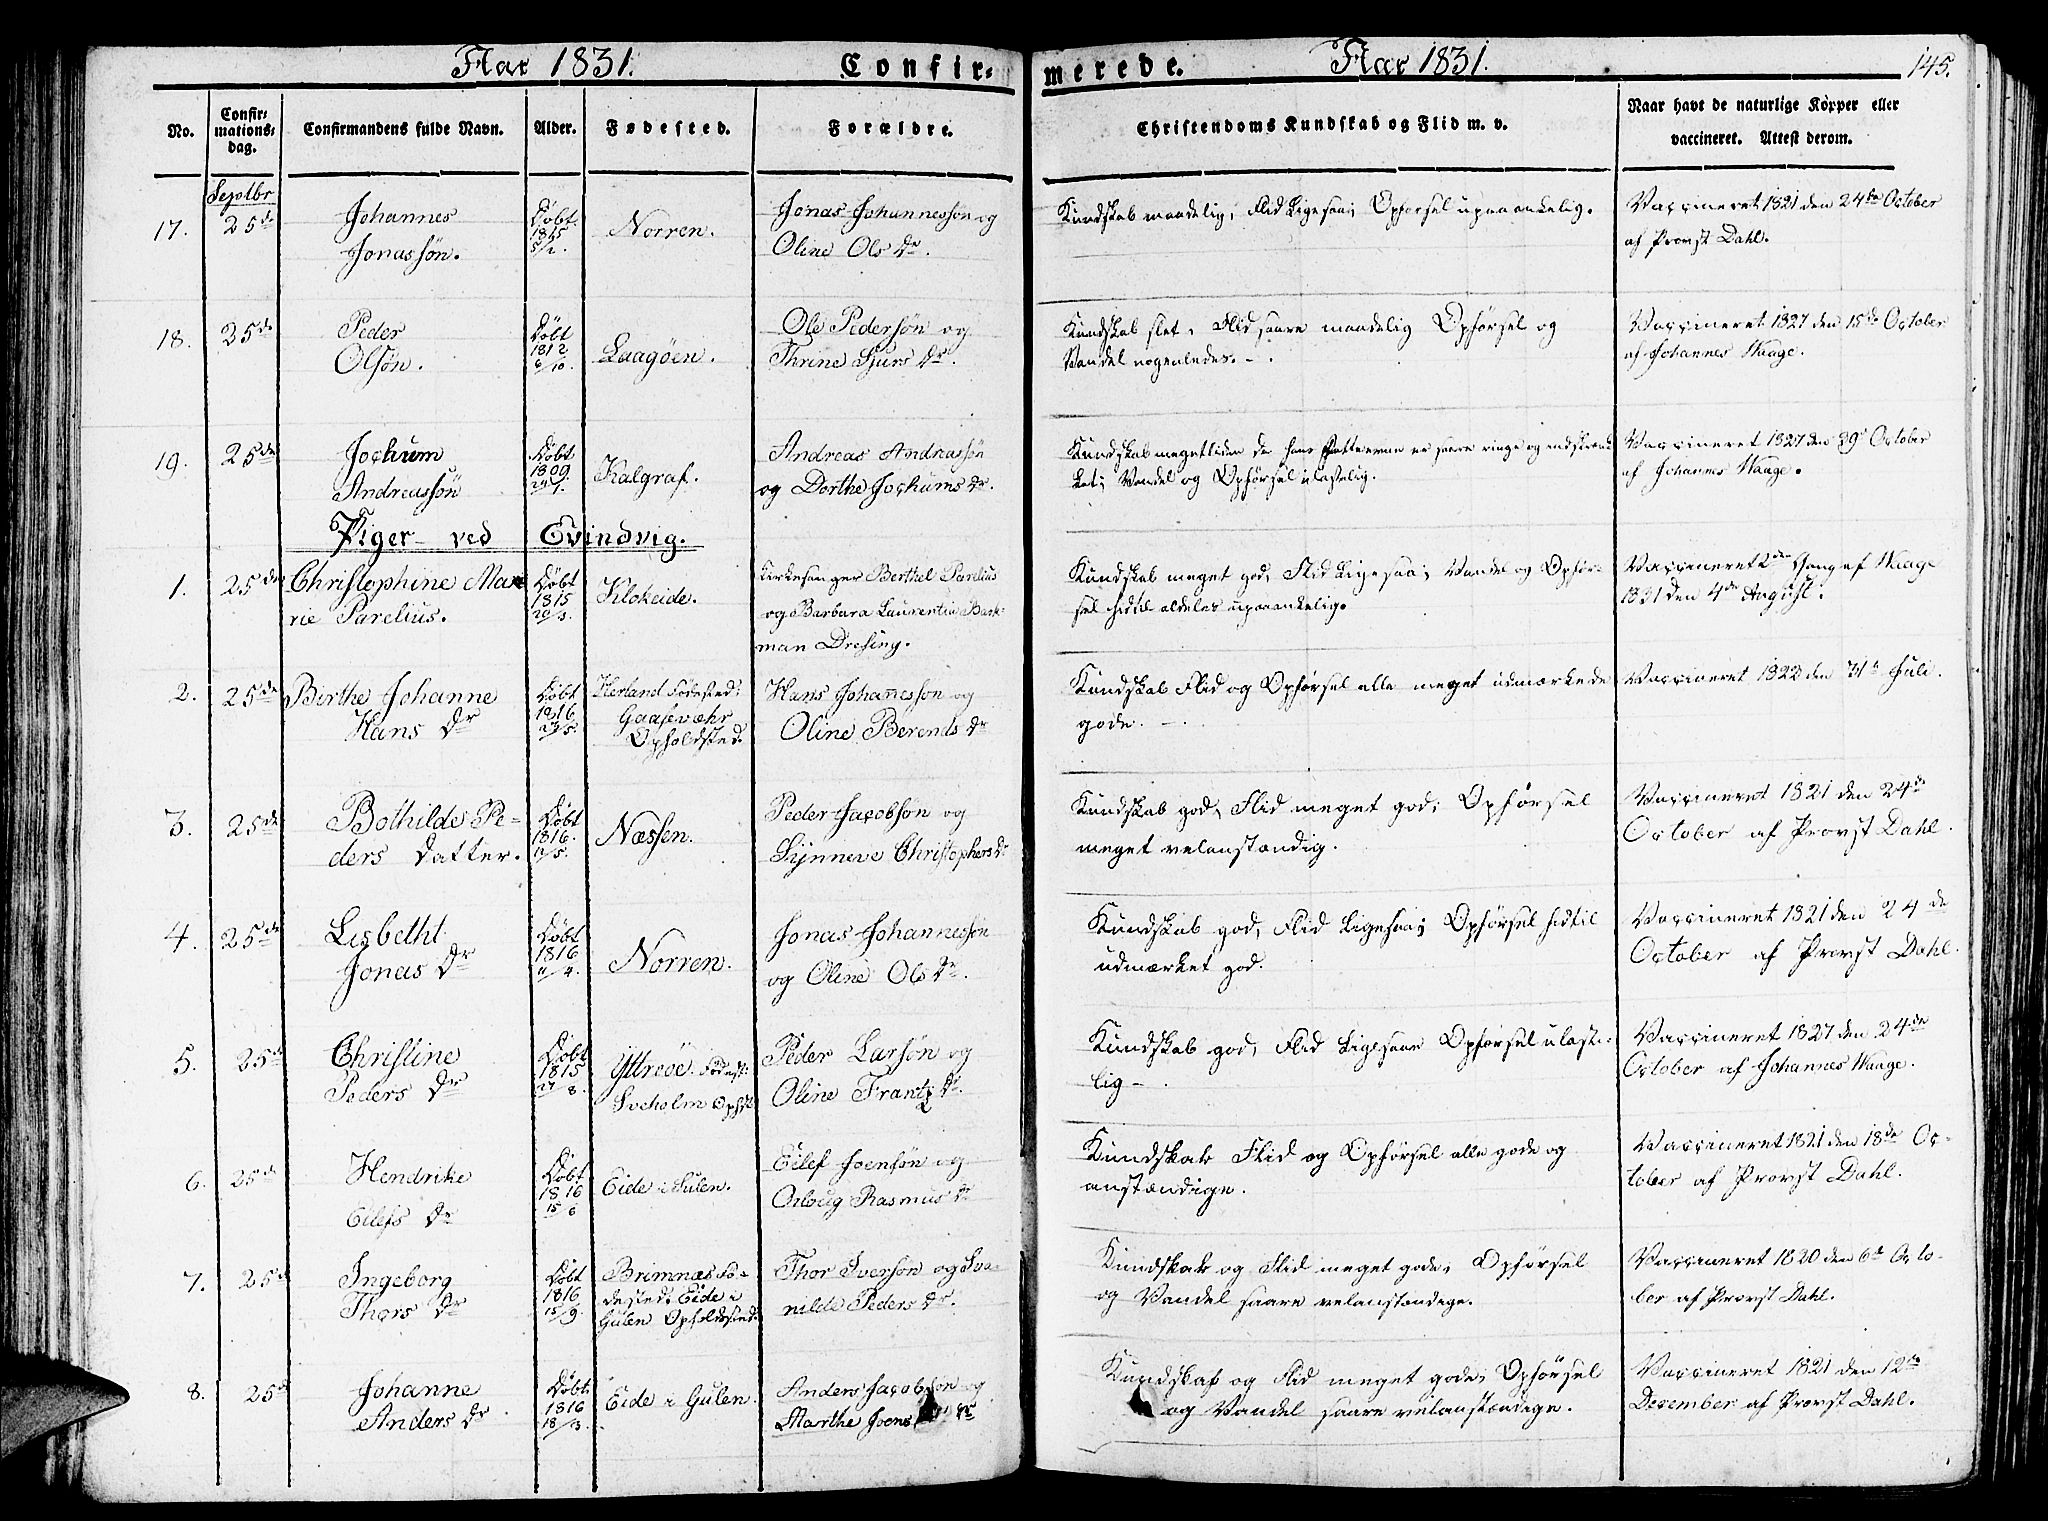 Aar 1831. Confir-
merede. Aar 1831. 145.
No.
Confir-
mations-
dag.
Confirmandens fulde Navn.
Alder.
Fødested.
Forældre.
Christendoms Kundskab og Flid m. v.
Naar havt de naturlige Köpper eller
vaccineret. Attest derom.
Septbr
17.
25de
Johannes
Jonassøn.
Døbt
1815
5/2.
Norren.
Jonas Johannessøn og
Oline Ols Dr.
Kundskab maadelig, Flid ligesaa; Opførsel upaaankelig.
Vaccineret 1821 den 24de October
af Provst Dahl.
18.
25de
Peder
Olsøn.
Døbt
1812
6/10
Laagøen.
Ole Pedersøn og
Thrine Sjurs Dr.
Kundskab slet, Flid saare maadelig Opførsel og
Vandel nogenledes. -
Vaccineret 1827 den 15de October
af Johannes Waage.
19.
25de
Jochum
Andreassøn
Døbt
1809
Kalgraf.
Andreas Andreassøn
og Dorthe Jochums Dr.
Kundskab meget liden da hans Fatteevne er saare ringe og indskrænk
ket; Vandel og Opførsel ulastelig.
Vaccineret 1827 den October
af Johannes Waage.
Piger ved Evindvig.
1.
25de
Christophine Ma
rie Parelius.
Døbt
1815
20/3.
Klokeide.
Kirkesanger Berthel Parelius
og Barbara Laurentia Bark-
man Dresing.
Kundskab meget god, Flid ligesaa; Vandel og Opfør-
sel hidtil aldeles upaaankelig.
Vaccineret 2den Gang af Waage
1831 den 4de August.
2.
25de
Birthe Johanne
Hans Dr
Døbt
1816
23/5.
Herland Födested:
Gaasevæhr
Opholdsted.
Hans Johannessøn og
Oline Berends Dr
Kundskab Flid og Opførsel alle meget udmærkede
gode. -
Vaccineret 1822 den 31te Juli.
3.
25de
Bothilde Pe-
ders Datter.
Døbt
1816.
11/5.
Næssen.
Peder Jacobsøn og
Synneve Christophers Dr
Kundskab god, Flid meget god; Opførsel
meget velanstændig.
Vaccineret 1821 den 24de
October af Provst Dahl.
4.
25de
Lisbetht
Jonas Dr
Døbt
1816
11/4.
Norren.
Jonas Johannessøn
og Oline Ols Dr.
Kundskab god, Flid ligesaa; Opførsel hidtil
udmærket god.
Vaccineret 1821 den 24de
October af Provst Dahl.
5.
25de
Christine
Peders Dr
Døbt
1815
27/8.
Yttreöe. Födest:
Svcholm Opholdst
Peder Larsøn og
Oline Frantz Dr.
Kundskab god, Flid ligesaa Opførsel ulaste-
lig -
Vaccineret 1827 den 24de
October af Johannes Waage.
6.
25de
Hendrike
Eilefs Dr
Døbt
1816
15/6
Eide i Gulen.
Eilef Joensøn og
Orloug Rasmus Dr
Kundskab Flid og Opførsel alle gode og
anstændige.
Vaccineret 1821 den 18de Oc-
tober af Provst Dahl.
7.
25de
Ingeborg
Thors Dr
Døbt
1816
15/9.
Brimnæs Fö-
dested: Eide i
Gulen Opholdssted.
Thor Iversøn og Sva-
nilde Peders Dr.
Kundskab og Flid meget gode; Opførsel
og Vandel saare velanstændige.
Vaccineret 1820 den 6te Octo-
ber af Provst Dahl.
8.
25de
Johanne
Anders Dr
Døbt.
1816
18/3.
Eide i Gulen.
Anders Jacobsøn og
Marthe Joens Dr
Kundskab og Flid meget gode; Opførsel
og Vandel saare velanstændige.
Vaccineret 1821 den 12te
December af Provst Dahl.